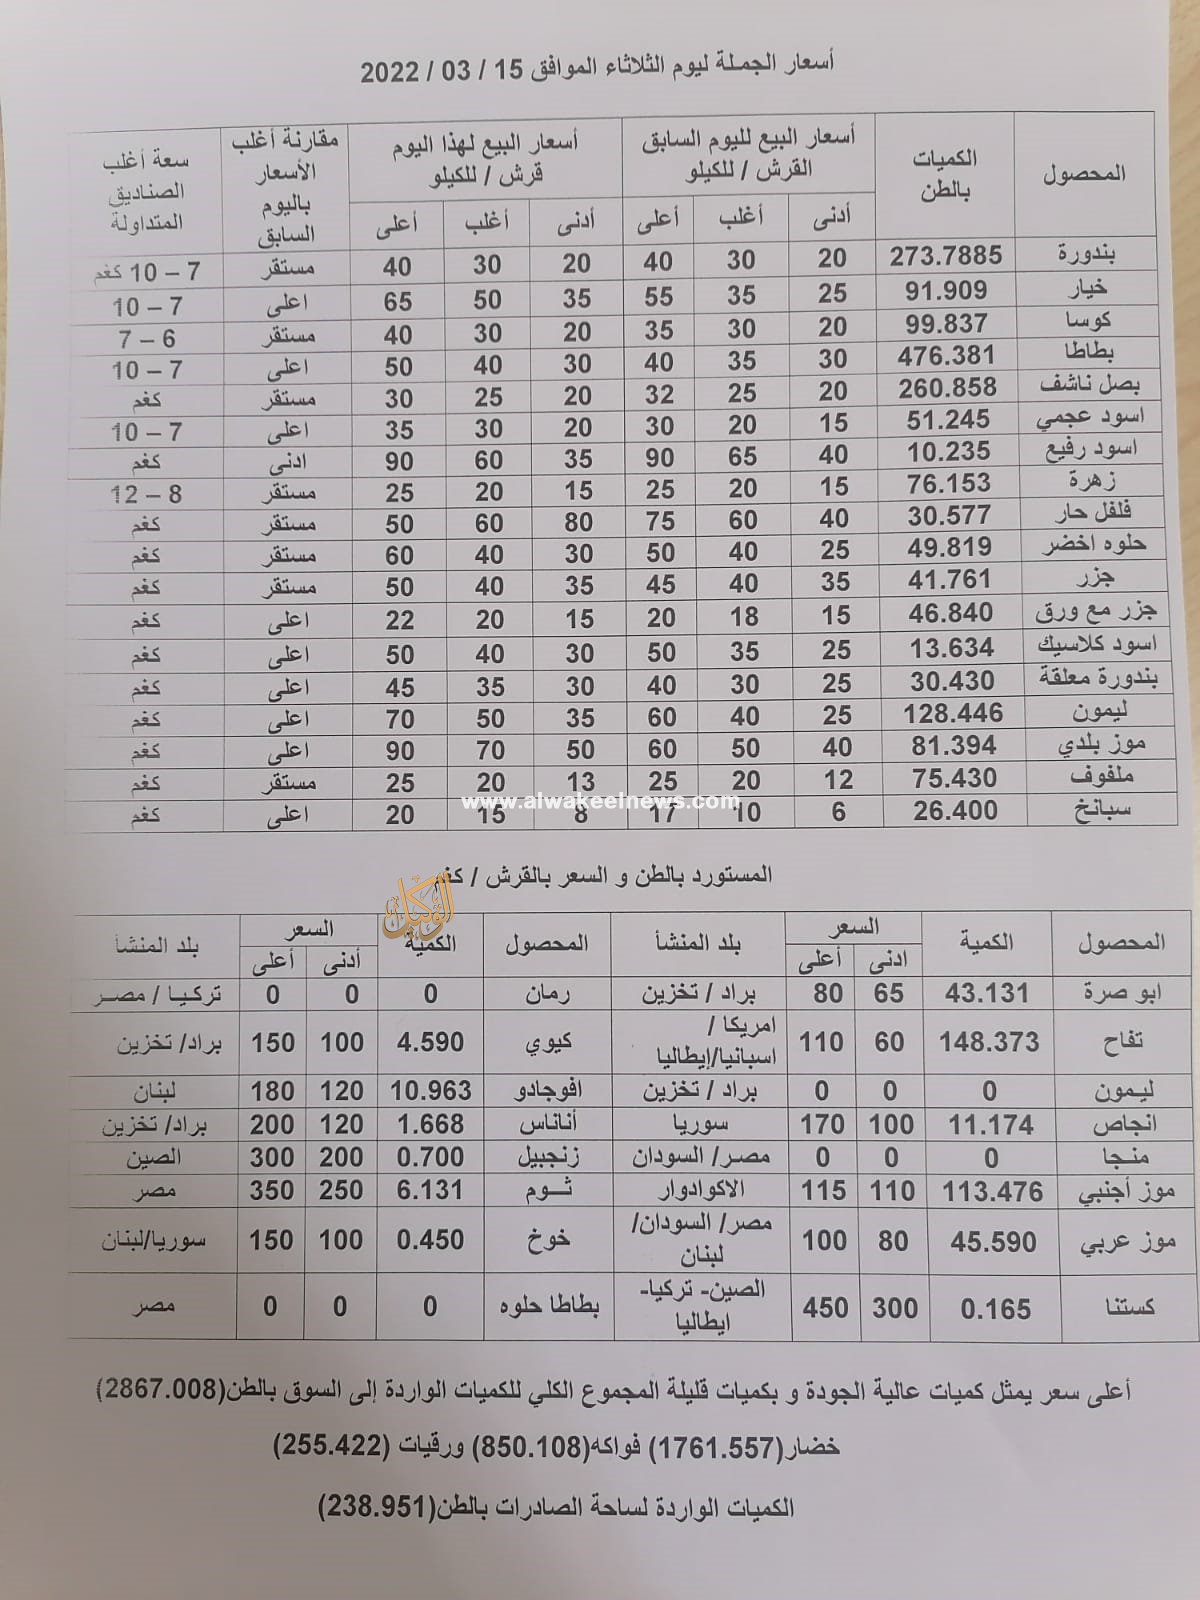 أسعار الجملة ليوم الثلاثاء الموافق 15 / 03 / 2022
المحصول | الكميات بالطن | أسعار البيع لليوم السابق القرش / للكيلو | أسعار البيع لهذا اليوم قرش / للكيلو | مقارنة أغلب الأسعار باليوم السابق | سعة أغلب الصناديق المتداولة
أدنى | أغلب | أعلى | أدنى | أغلب | أعلى
بندورة | 273.7885 | 20 | 30 | 40 | 20 | 30 | 40 | مستقر | 7 – 10 كغم
خيار | 91.909 | 25 | 35 | 55 | 35 | 50 | 65 | اعلى | 7 – 10
كوسا | 99.837 | 20 | 30 | 35 | 20 | 30 | 40 | مستقر | 6 – 7
بطاطا | 476.381 | 30 | 35 | 40 | 30 | 40 | 50 | اعلى | 7 – 10
بصل ناشف | 260.858 | 20 | 25 | 32 | 20 | 25 | 30 | مستقر | كغم
اسود عجمي | 51.245 | 15 | 20 | 30 | 20 | 30 | 35 | اعلى | 7 – 10
اسود رفيع | 10.235 | 40 | 65 | 90 | 35 | 60 | 90 | ادنى | كغم
زهرة | 76.153 | 15 | 20 | 25 | 15 | 20 | 25 | مستقر | 8 – 12
فلفل حار | 30.577 | 40 | 60 | 75 | 80 | 60 | 50 | مستقر | كغم
حلوه اخضر | 49.819 | 25 | 40 | 50 | 30 | 40 | 60 | مستقر | كغم
جزر | 41.761 | 35 | 40 | 45 | 35 | 40 | 50 | مستقر | كغم
جزر مع ورق | 46.840 | 15 | 18 | 20 | 15 | 20 | 22 | اعلى | كغم
اسود كلاسيك | 13.634 | 25 | 35 | 50 | 30 | 40 | 50 | اعلى | كغم
بندورة معلقة | 30.430 | 25 | 30 | 40 | 30 | 35 | 45 | اعلى | كغم
ليمون | 128.446 | 25 | 40 | 60 | 35 | 50 | 70 | اعلى | كغم
موز بلدي | 81.394 | 40 | 50 | 60 | 50 | 70 | 90 | اعلى | كغم
ملفوف | 75.430 | 12 | 20 | 25 | 13 | 20 | 25 | مستقر | كغم
www.alwakeelnews.com
سبانخ | 26.400 | 6 | 10 | 17 | 8 | 15 | 20 | اعلى | كغم
المستورد بالطن و السعر بالقرش / كغم
الوكيل
المحصول | الكمية | السعر | بلد المنشأ | المحصول | الكمية | السعر | بلد المنشأ
ادنى | أعلى | أدنى | أعلى
ابو صرة | 43.131 | 65 | 80 | براد / تخزين | رمان | 0 | 0 | 0 | تركيا / مصر
تفاح | 148.373 | 60 | 110 | امريكا / اسبانيا/إيطاليا | كيوي | 4.590 | 100 | 150 | براد/ تخزين
ليمون | 0 | 0 | 0 | براد / تخزين | افوجادو | 10.963 | 120 | 180 | لبنان
انجاص | 11.174 | 100 | 170 | سوريا | أناناس | 1.668 | 120 | 200 | براد/ تخزين
منجا | 0 | 0 | 0 | مصر/ السودان | زنجبيل | 0.700 | 200 | 300 | الصين
موز أجنبي | 113.476 | 110 | 115 | الاكوادوار | ثوم | 6.131 | 250 | 350 | مصر
موز عربي | 45.590 | 80 | 100 | مصر/ السودان/ لبنان | خوخ | 0.450 | 100 | 150 | سوريا/لبنان
كستنا | 0.165 | 300 | 450 | الصين- تركيا- ايطاليا | بطاطا حلوه | 0 | 0 | 0 | مصر
أعلى سعر يمثل كميات عالية الجودة و بكميات قليلة المجموع الكلي للكميات الواردة إلى السوق بالطن(2867.008)
خضار(1761.557) فواكه(850.108) ورقيات (255.422)
الكميات الواردة لساحة الصادرات بالطن(238.951)